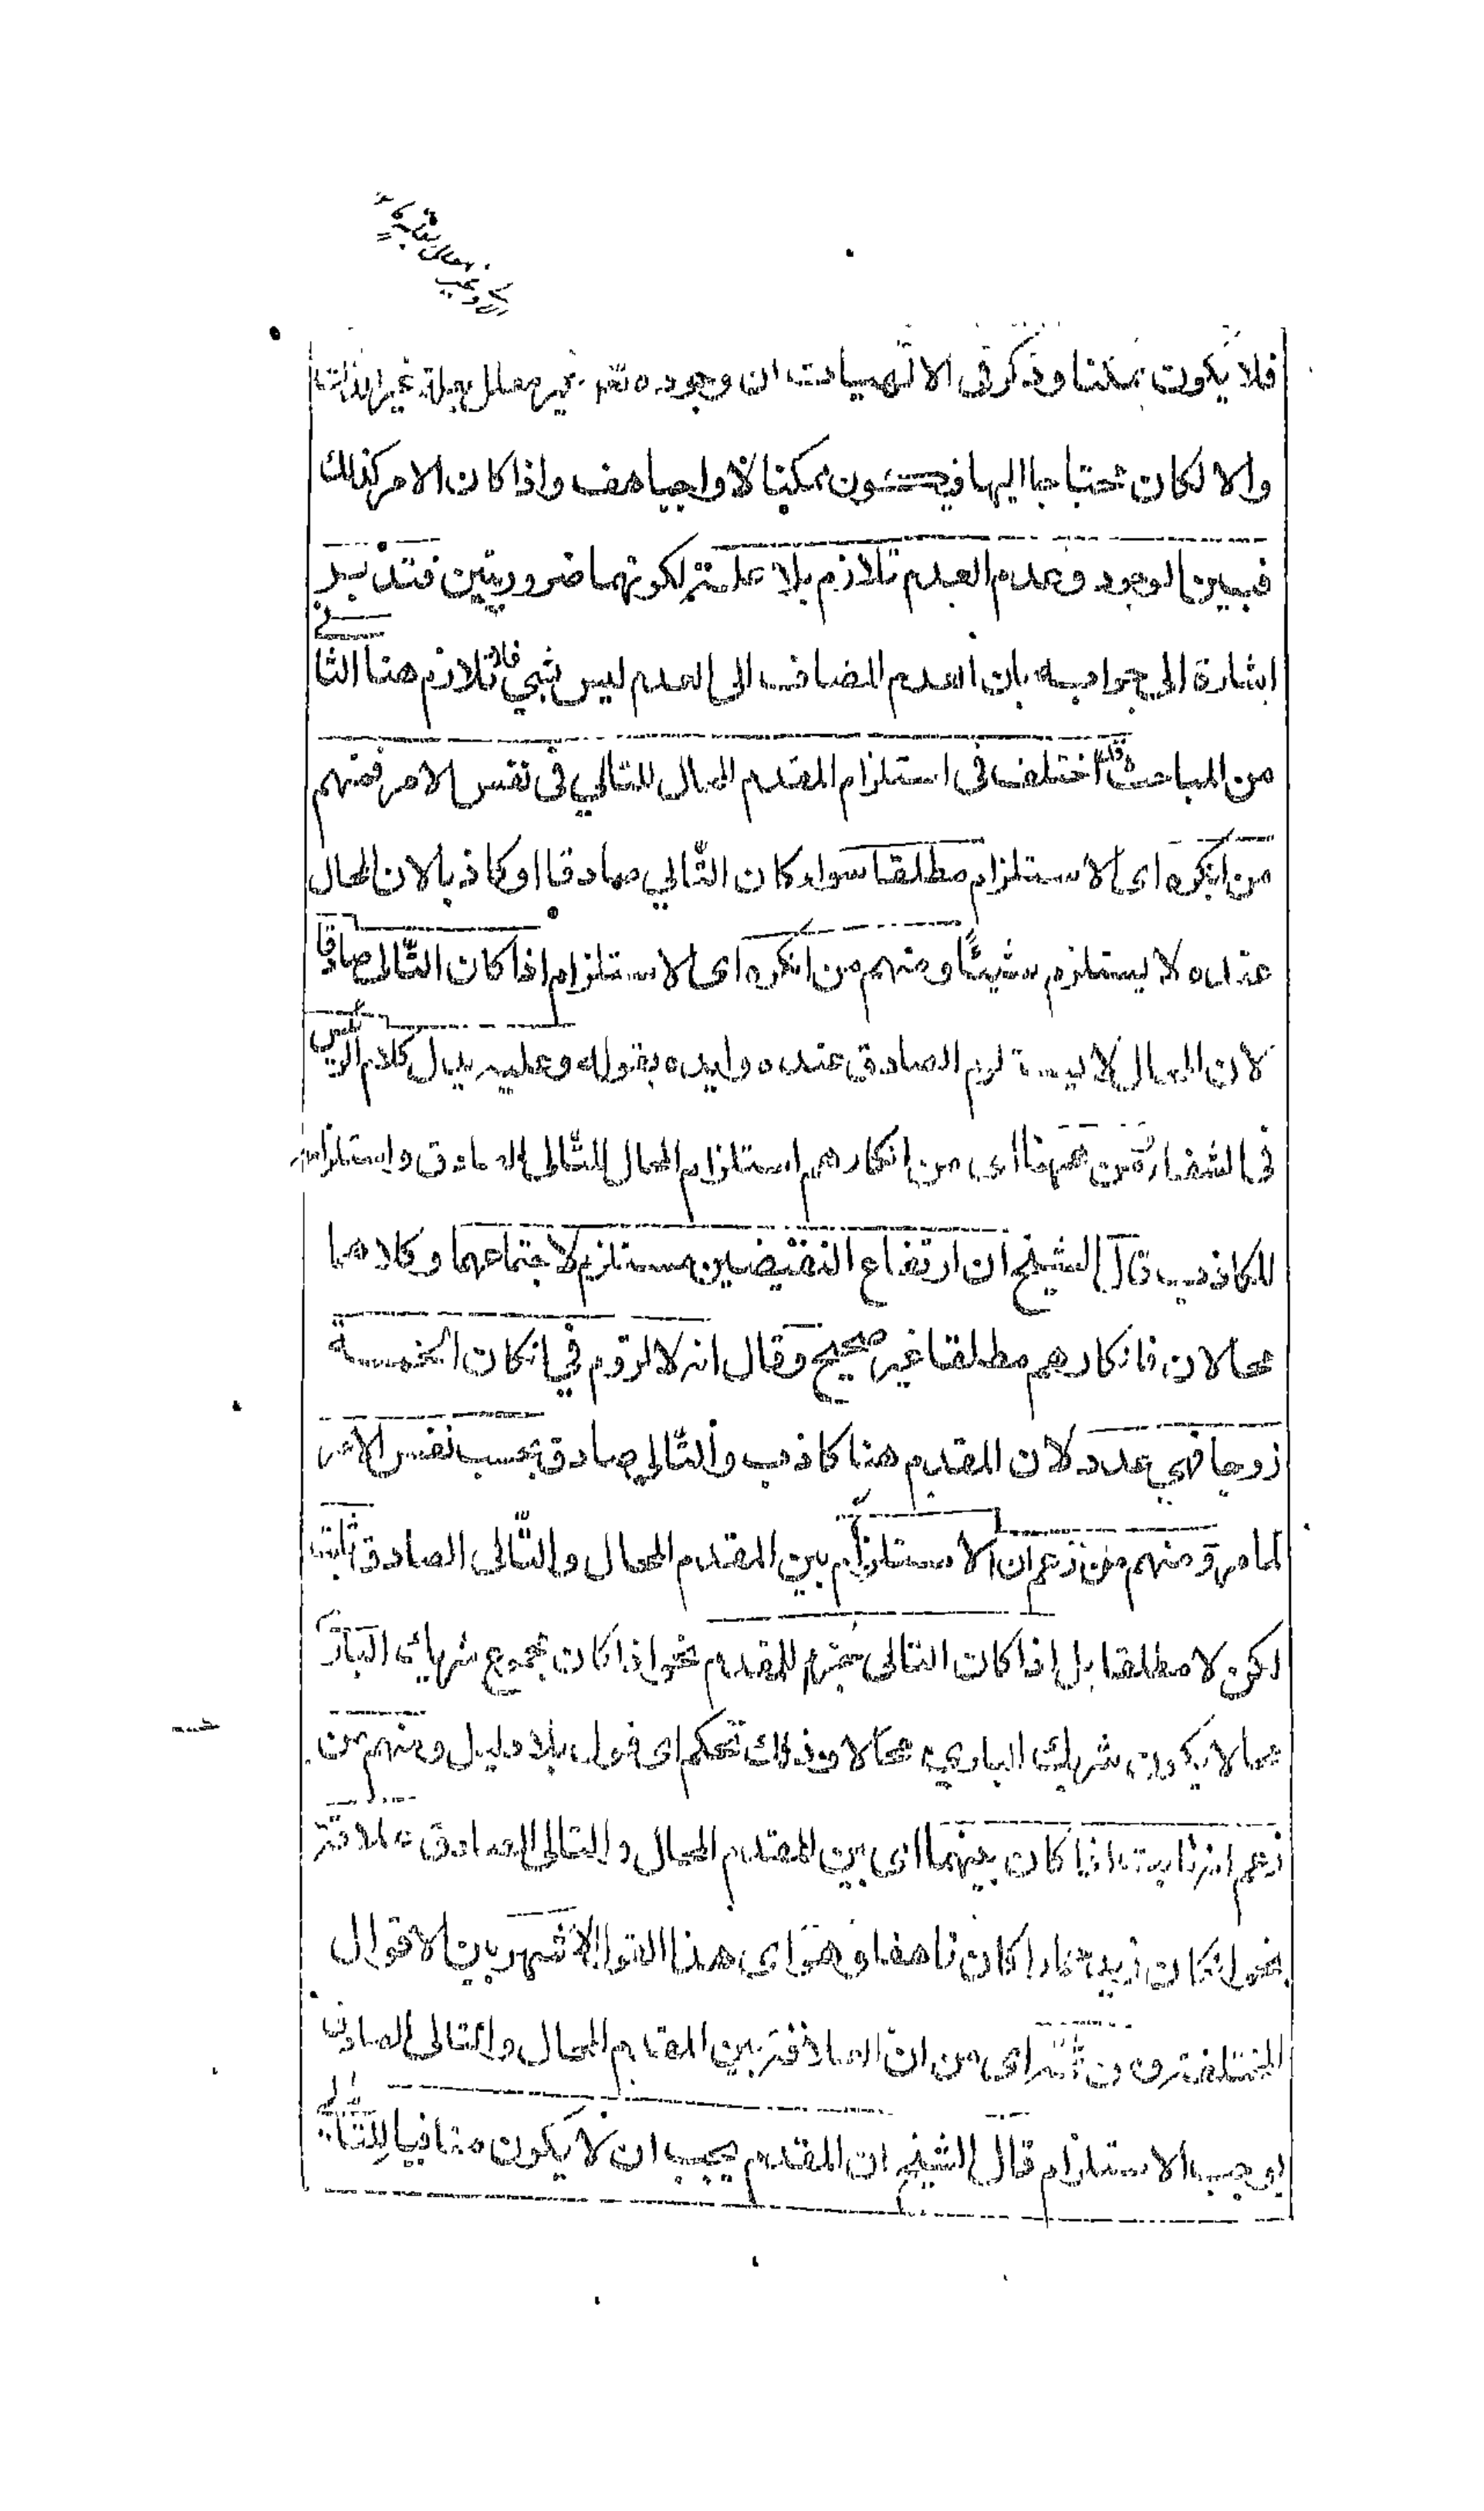 فلا يكون ممكنا وذكر فى الالهيات ان وجوده غير معلل بعلة غير الذات
والا لكان محتاجا اليها فيكون ممكنا لا واجبا هف واذا كان الامر كذلك
فبين الوجود وعدم العدم تلازم بلا علية لكونهما ضروريتين فتدبر
اشارة الى جوابه بان العدم المضاف الى العدم ليس بشئ فلا تلازم هنا الثا
من المباحث اختلف فى استلزام المقدم المحال للتالي فى نفس الامر فمنهم
من انكره اى الاستلزام مطلقا سواء كان التالي صادقا او كاذبا لان المحال
عنده لا يستلزم شيئا ومنهم من انكره اى الاستلزام اذا كان التالى صادقا
لان المحال لا يستلزم الصادق عنده وايده بقوله وعليه يدل كلام الرئيس
فى الشفاء ومن ههنا اى من انكارهم استلزام المحال للتالى الصادق واستلزامه
للكاذب قال الشيخ ان ارتفاع النقيضين مستلزم لاجتماعهما وكلاهما
محالان فانكارهم مطلقا غير صحيح وقال انه لا لزوم في ان كان الخمسة
زوجا فهي عدد لان المقدم هنا كاذب والتالي صادق بحسب نفس الامر
لما مر ومنهم من زعم ان الاستلزام بين المقدم المحال والتالى الصادق ثابت
لكن لا مطلقا بل اذا كان التالى جزء للمقدم نحو اذا كان مجموع شريك البارى
محالا يكون شريك الباري محالا وذلك تحكم اى قول بلا دليل ومنهم من
زعم انه ثابت اذا كان بينهما اى بين المقدم المحال والتالى الصادق علاقة
نحو ان كان زيد حمارا كان ناهقا وهو اى هذا القول الاشهر بين الاقوال
المختلفة ومن ثمه اى من ان العلاقة بين المقدم المحال والتالى الصادق
يوجب الاستلزام قال الشيخ ان المقدم يجب ان لا يكون منافيا للتالي